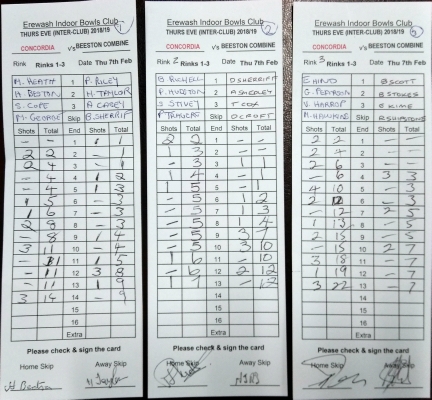 Erewash Indoor Bowls Club
THURS EVE (INTER-CLUB) 2018/19 1
CONCORDIA v's BEESTON COMBINE
Rink Rinks 1-3 Date Thu 7th Feb
M. HEATH 1 P. RILEY
H. BESTON 2 H. TAYLOR
S. COPE 3 A CASEY
M. GEORGE Skip B. SHERRIFF
Shots Total End Shots Total
- - 1 1 1
2 2 2 - 1
2 4 3 - 1
- 4 4 1 2
- 4 5 1 3
1 5 6 - 3
1 6 7 - 3
2 8 8 - 3
- 8 9 1 4
3 11 10 - 4
- 11 11 1 5
- 11 12 3 8
- 11 13 1 9
3 14 14 - 9
15
16
Extra
Please check & sign the card
Home Skip Away Skip
Erewash Indoor Bowls Club
THURS EVE (INTER-CLUB) 2018/19 2
CONCORDIA v's BEESTON COMBINE
Rink 2 Rinks 1-3 Date Thu 7th Feb
1 D SHERRIFF
2
3 T COX
Skip D CROFT
Shots Total End Shots Total
2 2 1 - -
1 3 2 - -
- 3 3 1 1
1 4 4 - 1
1 5 5 - 1
- 5 6 1 2
- 5 7 1 3
- 5 8 1 4
- 5 9 3 7
- 5 10 3 10
1 6 11 - 10
- 6 12 2 12
1 7 13 - 12
14
15
16
Extra
Please check & sign the card
Home Skip Away Skip
Erewash Indoor Bowls Club
THURS EVE (INTER-CLUB) 2018/19 3
CONCORDIA v's BEESTON COMBINE
Rink 3 Rinks 1-3 Date Thu 7th Feb
E HIND 1 B SCOTT
G. PEARSON 2 B STOKES
V. HARROP 3 B KIME
M. HAWKINS Skip R. SHIPSTONE
Shots Total End Shots Total
2 2 1 - -
2 4 2 - -
2 6 3 - -
- 6 4 3 3
4 10 5 - 3
2 12 6 - 3
- 12 7 2 5
1 13 8 - 5
2 15 9 - 5
- 15 10 2 7
3 18 11 - 7
1 19 12 - 7
3 22 13 - 7
14
15
16
Extra
Please check & sign the card
Home Skip Away Skip